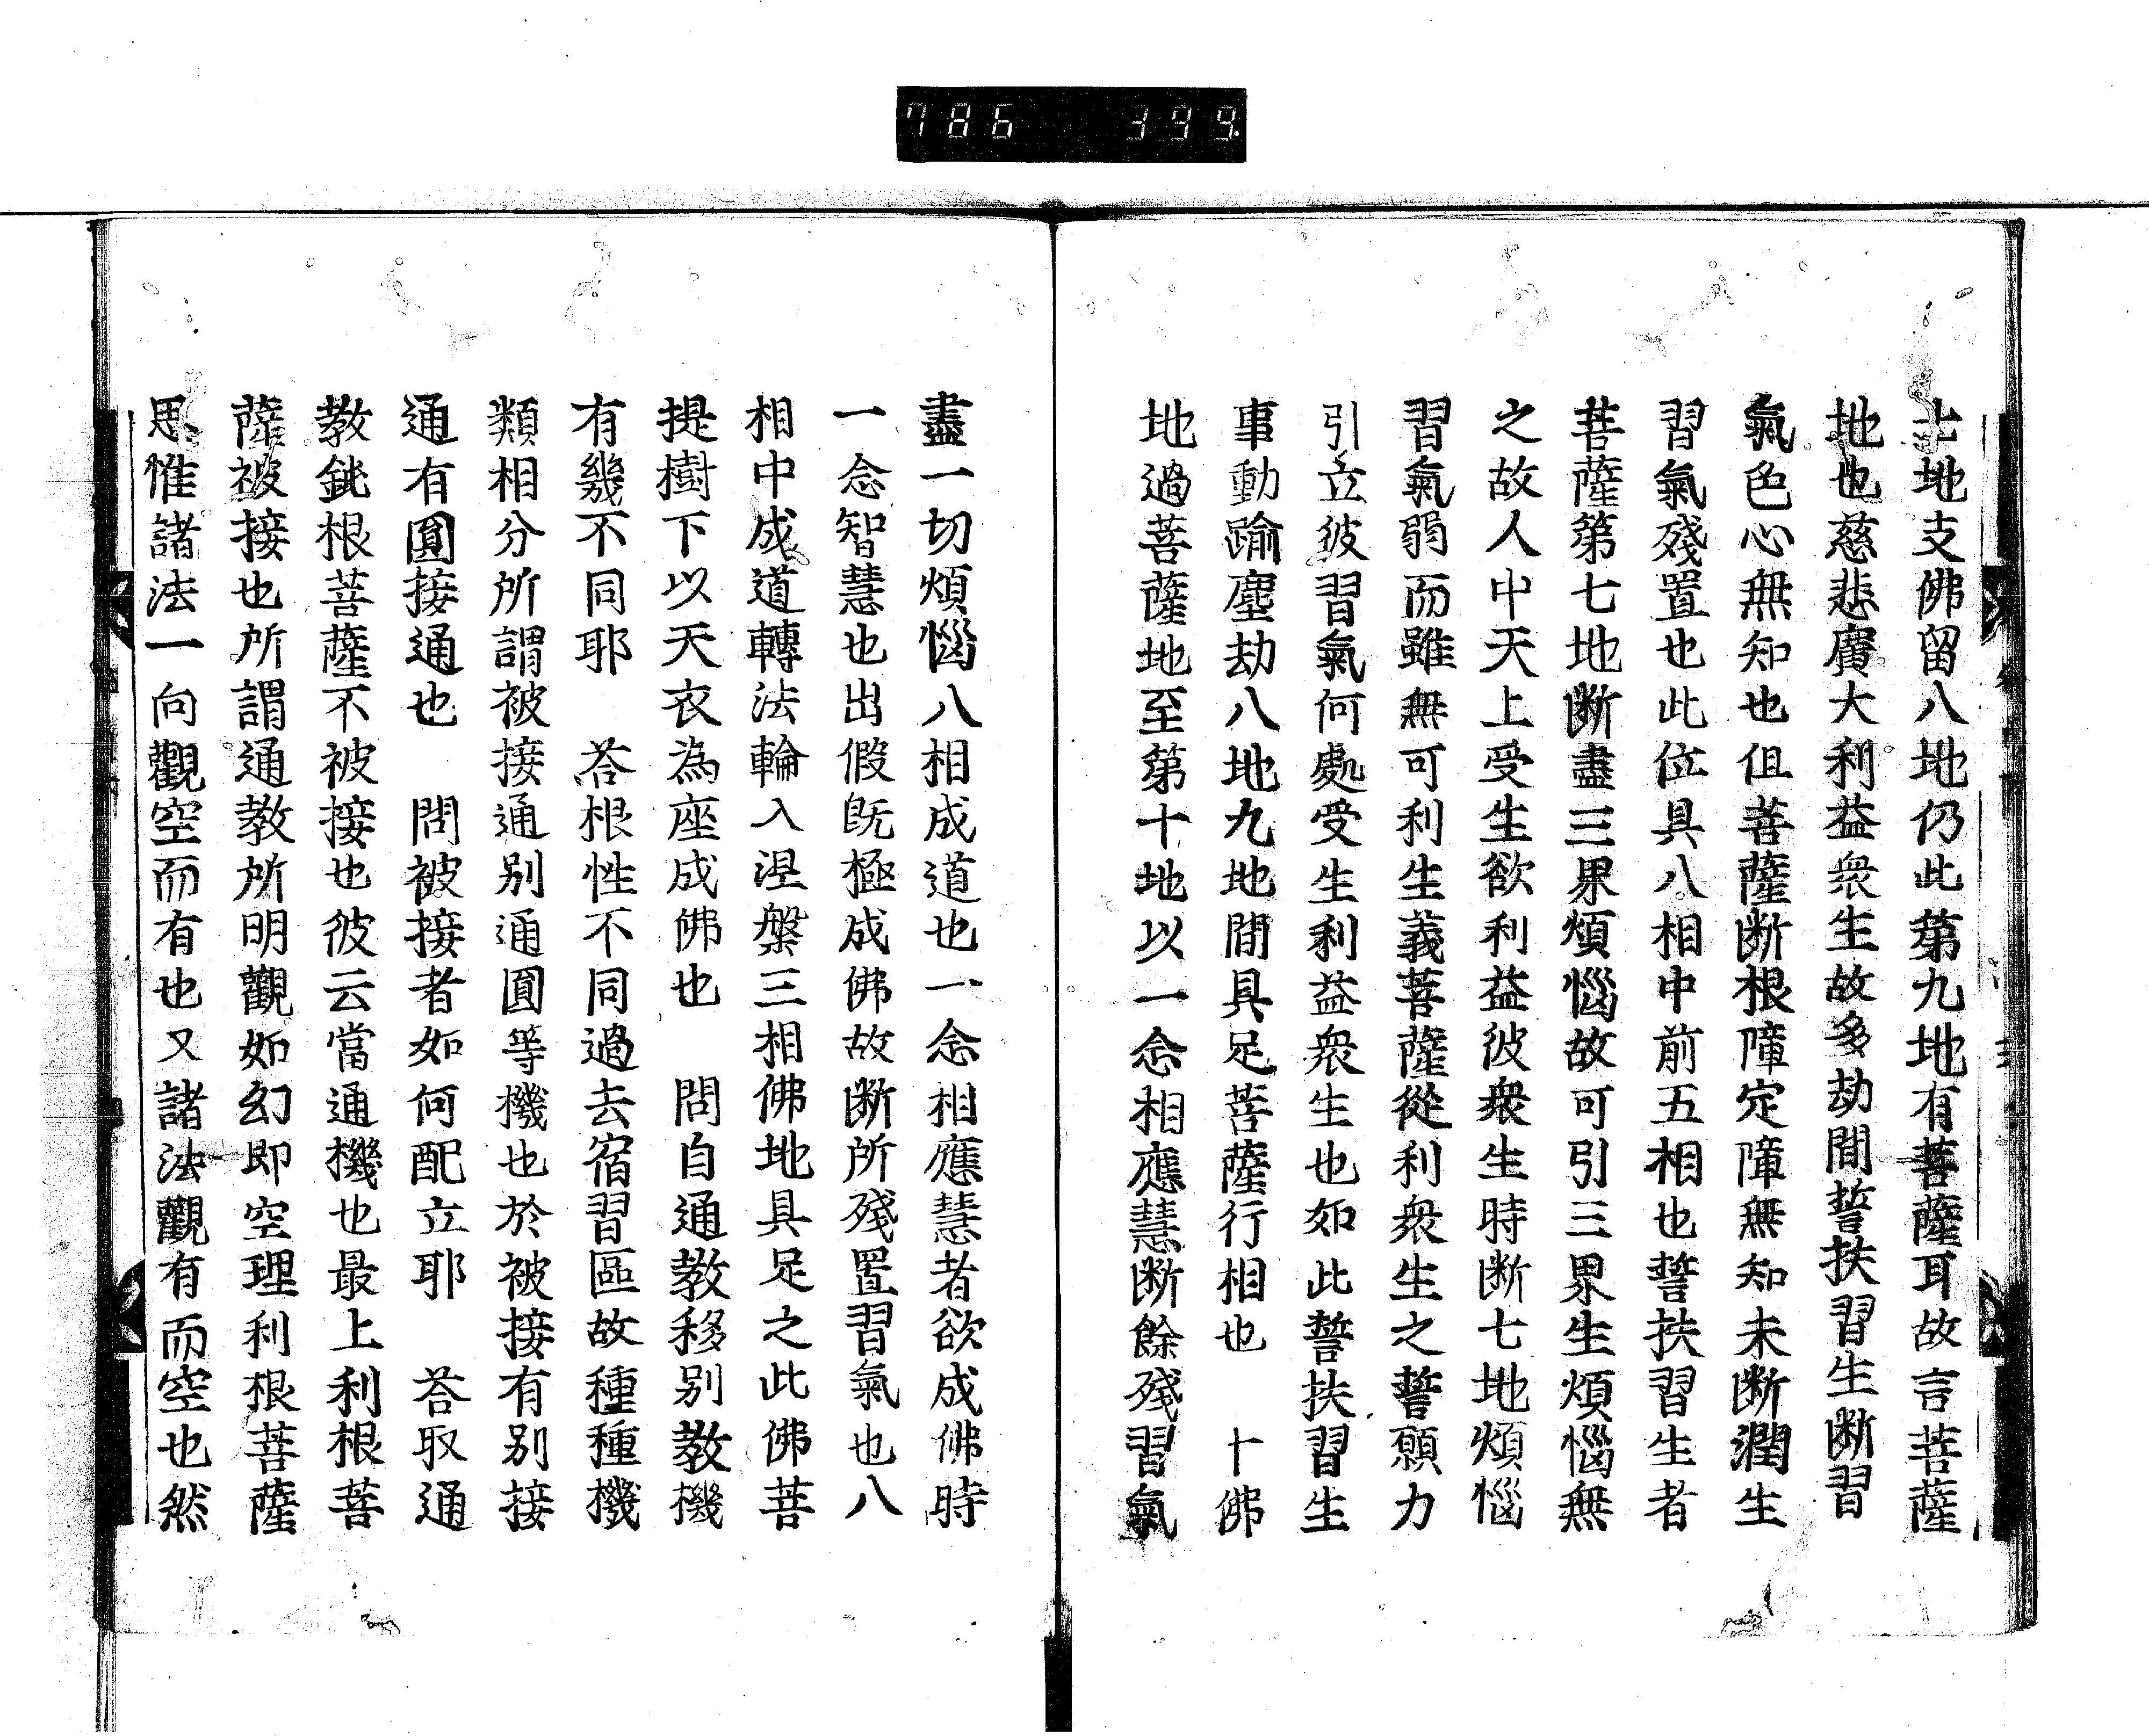 786 399.
七地支佛留八地仍此第九地有菩薩耳故言菩薩
地也慈悲廣大利益衆生故多劫間誓扶習生断習
氣色心無知也但菩薩断根障定障無知未断潤生
習氣殘置也此位具八相中前五相也誓扶習生者
菩薩第七地断盡三界煩惱故可引三界生煩惱無
之故人中天上受生欲利益彼衆生時断七地煩惱
習氣弱而雖無可利生義菩薩從利衆生之誓願力
引立彼習氣何處受生利益衆生也如此誓扶習生
事動踰塵劫八地九地間具足菩薩行相也 十佛
地過菩薩地至第十地以一念相應慧断餘殘習氣
盡一切煩惱八相成道也一念相應慧者欲成佛時
一念智慧也出假既極成佛故断所殘置習氣也八
相中成道轉法輪入涅槃三相佛地具足之此佛菩
提樹下以天衣為座成佛也 問自通教移別教機
有幾不同耶 荅根性不同過去宿習區故種種機
類相分所謂被接通別通圓等機也於被接有別接
通有圓接通也 問被接者如何配立耶 荅取通
教鈍根菩薩不被接也彼云當通機也最上利根菩
薩被接也所謂通教所明觀如幻即空理利根菩薩
思惟諸法一向觀空而有也又諸法觀有而空也然